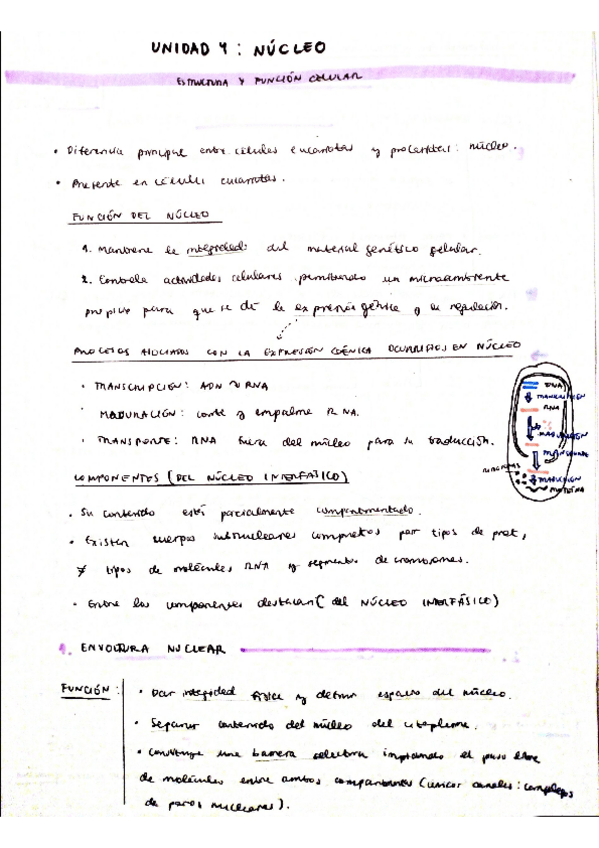 UNIDAD 4: NÚCLEO
ESTRUCTURA Y FUNCIÓN CELULAR
• Diferencia principal entre células eucariotas y procariotas: núcleo.
• Presente en células eucariotas.
FUNCIÓN DEL NÚCLEO
1. Mantiene la integridad del material genético celular.
2. Controla actividades celulares permitiendo un microambiente
propicio para que se dé la expresión génica y su regulación.
PROCESOS ASOCIADOS CON LA EXPRESIÓN GÉNICA OCURRIDOS EN NÚCLEO
• TRANSCRIPCIÓN: ADN RNA
MADURACIÓN: corte y empalme RNA.
• TRANSPORTE: RNA fuera del núcleo para su traducción.
DNA
TRANSCRIPCIÓN
RNA
MADURACIÓN
TRANSPORTE
RIBOSOMAS
TRADUCCIÓN
PROTEÍNA
COMPONENTES (DEL NÚCLEO INTERFÁSICO)
• Su contenido está parcialmente compartimentado.
• Existen cuerpos subnucleares compuestos por tipos de prot,
≠ tipos de moléculas RNA y segmentos de cromosomas.
• Entre los componentes destacan (del NÚCLEO INTERFÁSICO)
1. ENVOLTURA NUCLEAR
FUNCIÓN:
• Dar integridad física y definir espacio del núcleo.
• Separar contenido del núcleo del citoplasma.
• Constituye una barrera selectiva impidiendo el paso libre
de moléculas entre ambos compartimentos (únicos canales: complejos
de poros nucleares).